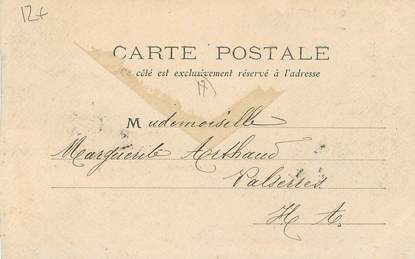 12+
CARTE POSTALE
côté est exclusivement réservé à l'adresse
Mademoiselle
Marguerite Arthaud
Valserres
H A.